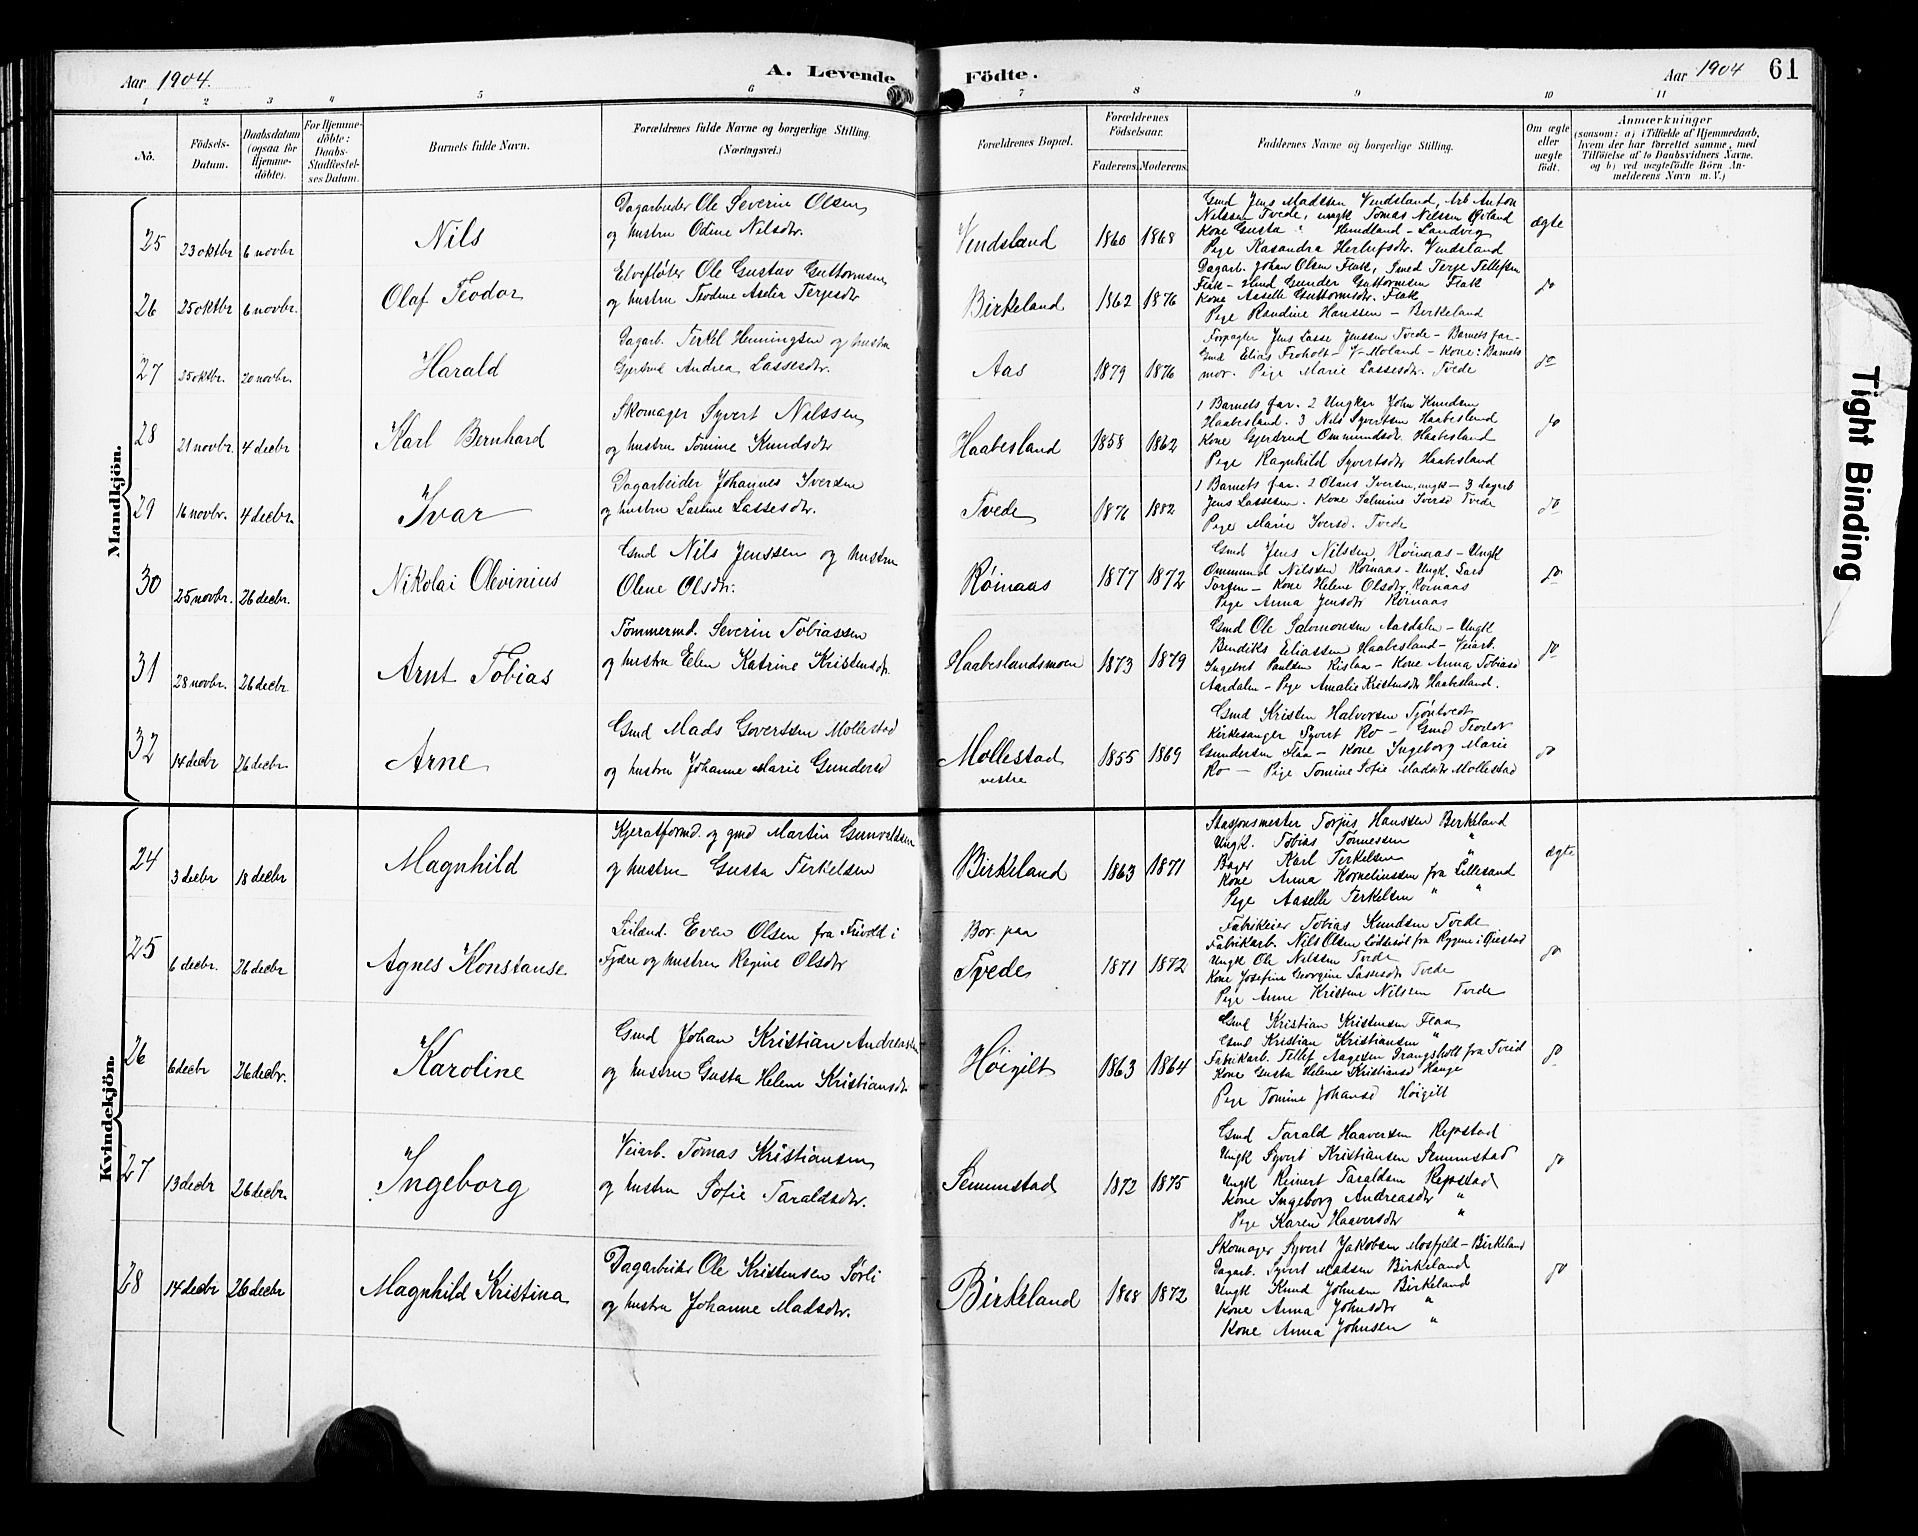 Aar 1904. A. Levende Födte. Aar 1904 61
1 2 3 4 5 6 7 8 9 10 11
No.
Födsels-Datum.
Daabsdatum (ogsaa for Hjemme-döbte).
For Hjemme-döbte: Daabs-Stadfæstel-ses Datum.
Barnets fulde Navn.
Forældrenes fulde Navne og borgerlige Stilling. (Næringsvei.)
Forældrenes Bopæl.
Forældrenes Födselsaar.
Faderens. Moderens.
Faddernes Navne og borgerlige Stilling.
Om ægte eller uægte födt.
Anmærkninger
(saasom: a) i Tilfælde af Hjemmedaab, hvem der har forrettet samme, med Tilföielse af to Daabsvidners Navne, og b) ved uægtefödte Börn An-melderens Navn m. V.)
Mandkjön.
25 23 oktbr 6 novbr Nils
Dagarbeider Ole Severin Olsen
og hustru Odine Nilsdtr.
Vendsland 1860 1868
Gmd Jens Madssen Vendsland, Arb Anton
Nilssen Tvede, ungk Tomas Nilssen Øvland
Kone Gusta " Hundland - Landvig
Pige Kasandra Herlufsdtr. Vendsland
ægte
26 25 oktbr 6 novbr. Olaf Teodor
Elvefløter Ole Gustav Guttormsen
og hustru Teodine Aselia Terjesdtr
Birkeland 1862 1876
Dagarb. Johan Olsen Flak, Smed Terje Tellefsen
Flak - Gmd Gunder Guttormsen Flak
Kone Aaselle Guttormsdtr. Flak
Pige Randine Hanssen - Birkeland
do
27 25 oktbr. 20 novbr. Harald
Dagarb. Terkel Henningsen og hustru
Gjertrud Andrea Lassesdtr.
Aas 1879 1876
Forpagter Jens Lasse Jenssen Tvede - Barnets far -
Gmd Elias Froholt - V-Moland - Kone: Barnets
mor. Pige Marie Lassesdtr. Tvede
do
28 21 novbr. 4 decbr Karl Bernhard
Skomager Syvert Nilssen
og hustru Tomine Knudsdtr
Haabesland 1858 1862
1 Barnets far. 2 Ungkar John Knudsen
Haabesland. 3 Nils Syvertsen Haabesland
Kone Gjertrud Ommundsdtr. Haabesland
Pige Ragnhild Syvertsdtr Haabesland
do
29 16 novbr. 4 decbr. Ivar
Dagarbeider Johannes Iversen
og hustru Lastine Lassesdtr.
Tvede 1876 1882
1 Barnets far. 2 Olaus Iversen, ungk - 3 dagarb
Jens Lassesen. Kone Salmine Iversd Tvede
Pige Marie Iversd. Tvede
do
30 25 novbr. 26 decbr. Nikolai Olevinius
Gmd Nils Jenssen og hustru
Olene Olsdtr.
Røinaas 1877 1872
Gmd Jens Nilssen Røinaas - Ungk
Ommund Nilssen Røinaas - Ungk. Lars
- Kone Helene Olsdtr, Røinaas
Pige Anna Jensdtr Røinaas
do
31 28 novbr. 26 decbr. Arnt Tobias
Tømmermd. Severin Tobiassen
og hustru Elen Katrine Kristensdtr.
Haabeslandsmoen 1873 1879
Gmd Ole Salvmonsen Aardalen - Ungk
Bendiks Eliassen Haabesland - Veiarb.
Ingebret Paulsen Rislaa - Kone Anna Tobiasd
Aardalen - Pige Amalie Kristensdtr Haabesland.
do
32 14 decbr 26 decbr. Arne
Gmd Mads Govertsen Mollestad
og hustru Johanne Marie Gundersd
Mollestad vestre 1855 1869
Gmd Kristen Halvorsen Tjöntvedt
Kirkesanger Syvert Ro - Gmd Teodor
Gundersen Flaa - Kone Ingeborg Marie
Ro - Pige Tomine Sofie Madsdtr Mollestad
do
Kvindekjön.
24 3 decbr 18 decbr Magnhild
og gmd Martin Gunvaldsen
og hustru Gusta Terkelsen
Birkeland 1863 1871
Stasjonsmester Torjus Hanssen Birkeland
Ungk. Tobias Tønnessen "
Bager Karl Terkelsen "
Kone Anna Korneliussen fra Lillesand
Pige Aaselle Terkelsen " "
ægte
25 6 decbr. 26 decbr Agnes Konstanse
Leilænd. Even Olsen fra Frivold i
Fjære og hustru Regine Olsdtr
Bor paa Tvede 1871 1872
Fabrikeier Tobias Knudsen Tvede
Fabrikarb. Nils Olsen Løddesøl fra Rygene i Øiestad
Ungk Ole Nilssen Tvede
Kone Josefine Georgine Lassesdtr Tvede
Pige Anne Kristine Nilssen Tvede
do
26 6 decbr 26 decbr. Karoline
Gmd Johan Kristian Andreassen
og hustru Gusta Helene Kristiansdtr
Höigilt 1863 1864
Gmd Kristian Kristensen Flaa
Gmd Kristian Kristiansen "
Fabrikarb. Tellef Aagesen Drangsholt fra Tveid
Kone Gusta Helene Kristiansd Hauge
Pige Tomine Johansd Höigilt
do
27 13 decbr 26 decbr. Ingeborg
Veiarb. Tomas Kristiansen
og hustru Sofie Taraldsdtr.
Semmstad 1872 1875
Gmd Tarald Haaversen Repstad
Ungk Syvert Kristiansen Semmstad
Ungk Reinert Taraldsen Repstad
Kone Ingeborg Andreasdtr "
Pige Karen Haaversdtr "
do
28 14 decbr 26 decbr Magnhild Kristina
Dagarbeider Ole Kristensen Sørli
og hustru Johanne Madsdtr.
Birkeland 1868 1872
Skomager Syvert Jakobsen Mosfjeld - Birkeland
Dagarb. Syvert Madsen Birkeland
Ungk Knud Johnsen Birkeland
Kone Anna Johnsdtr "
Kone Anna Johnsen "
do
Tight Binding